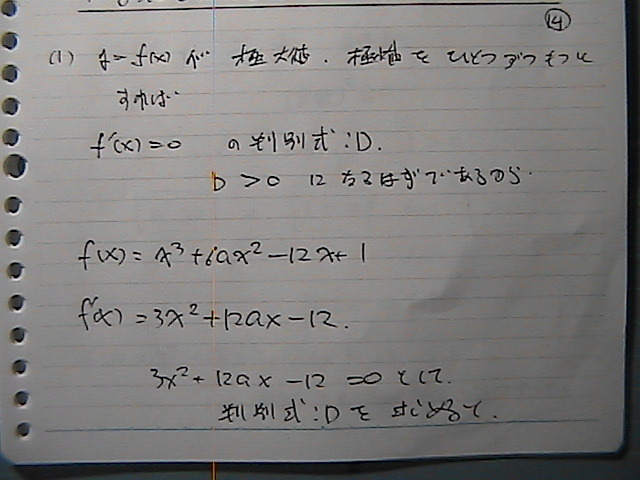 ⑭
(1) y=f(x)が 極大値、極値をひとつずつもつと
すれば
f'(x)=0 の判別式:D.
D>0 になるはずであるから.
f(x)=x³+6ax²-12x+1
f'(x)=3x²+12ax-12.
3x²+12ax-12=0として.
判別式:Dを求めると.